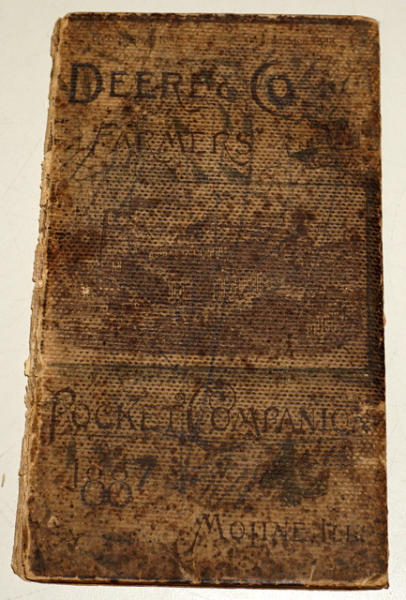 DEERE & CO
FARMERS'
POCKET COMPANION
1887
MOLINE, ILL.